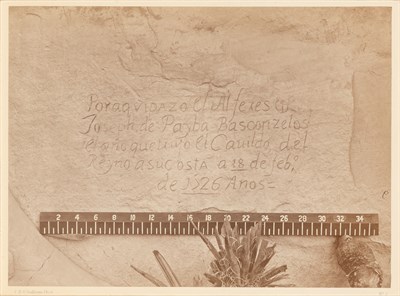 Por aqui pazo el Alferes Dn
Joseph de Payba Basconzelos
el año que trujo el Cauildo del
Reyno a su costa a 18 de feb.
de 1726 Años=
2 4 6 8 10 12 14 16 18 20 22 24 26 28 30 32 34